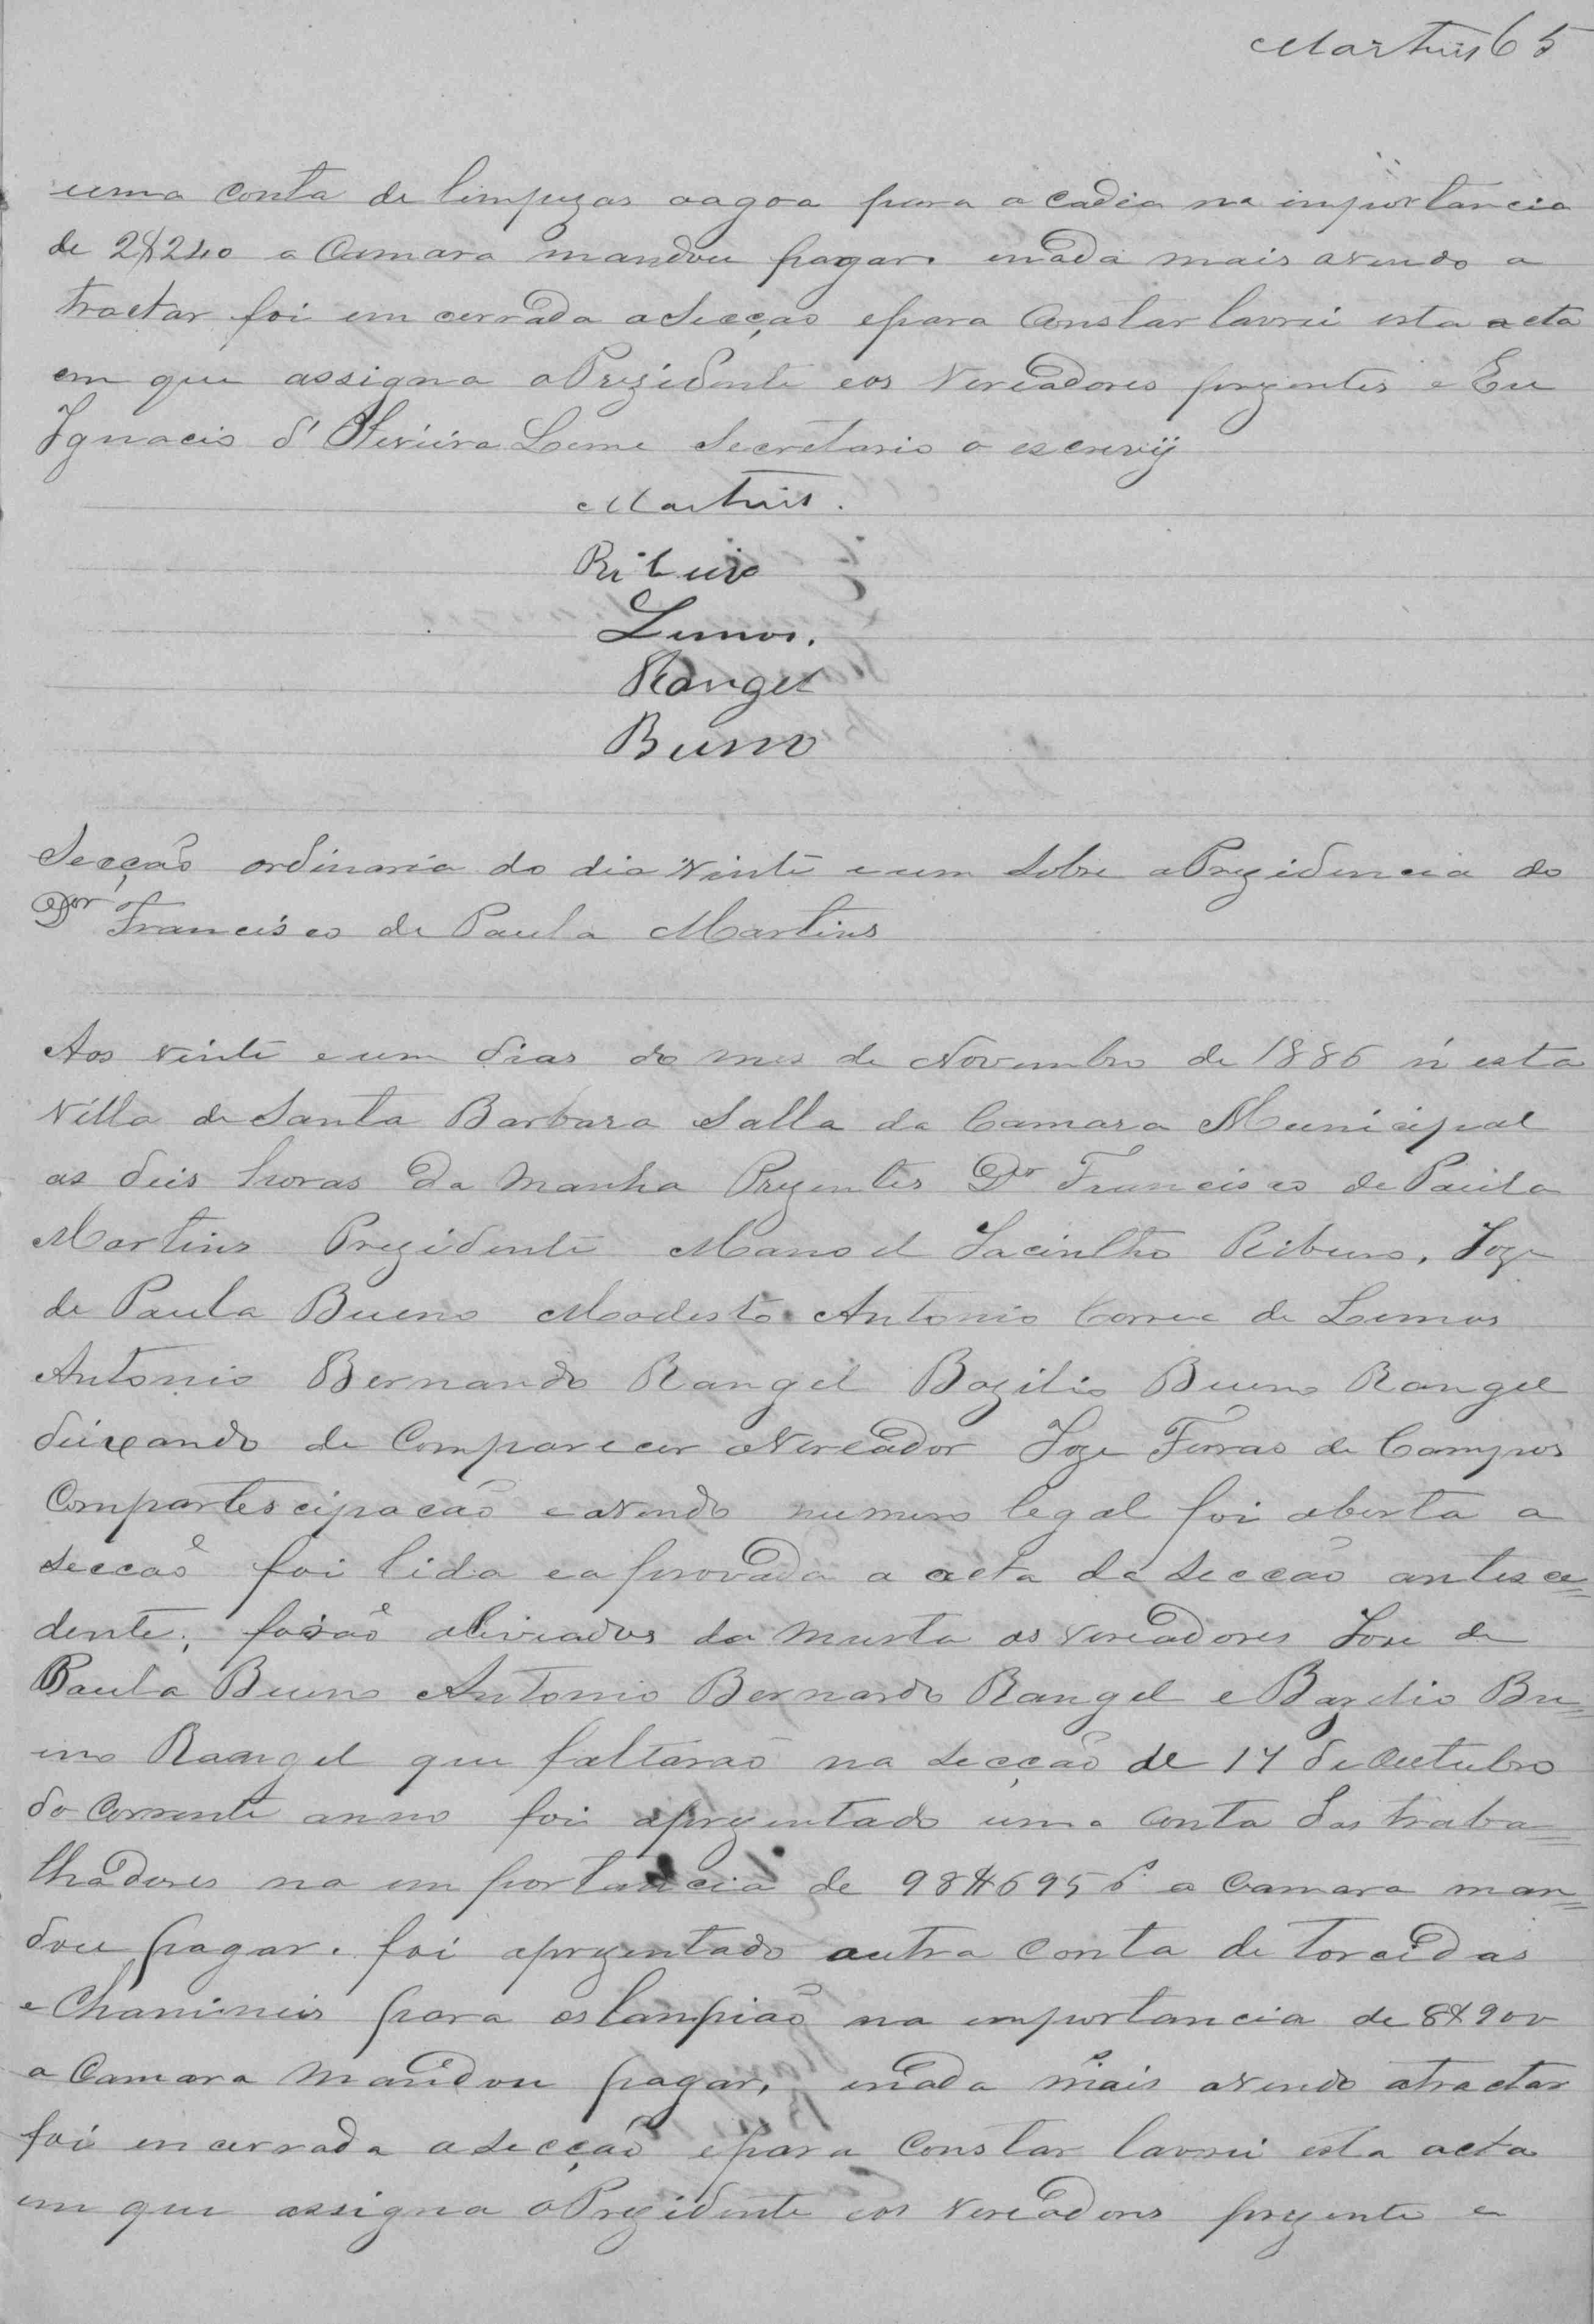 Martins 65
uma conta de limpezas aagoa para a cadia na importancia
de 2$240 a Camara mandou pagar. enada mais avendo a
tractar foi em cerrada aSecção epara Constar lavrei esta acta
em que assigna oPrezidente eos Vereadores prezentes e Eu
Ignacio d'Oliveira Leme Secretario o escrevij
Martins.
Ribeiro
Lemos.
Rangel
Bueno
Secção ordinaria do dia vinte eum Sobre aPrezidencia do
Dor Francisco de Paula Martins
Aos vinte eum dias do mes de Novembro de 1886 n'esta
Villa de Santa Barbara Salla da Camara Municipal
as deis horas da manha Prezentes Dr Francisco de Paula
Martins Prezidente Manoel Jacintho Ribeiro, Joze
de Paula Bueno Modesto Antonio Correa de Lemos
Antonio Bernardo Rangel Bazilio Bueno Rangel
deixando de Comparecer oVereador Joze Ferras de Campos
Compartescipacaõ eavendo numero legal foi aberta a
Seccaõ foi lida eaprovada a acta da Seccaõ antesce=
dente; foraõ aliviados da murta os vereadores Jose de
Paula Bueno Antonio Bernardo Rangel e Bazelio Bu=
eno Raangel que faltaraõ na Secção de 17 de Outubro
do Corrente anno foi aprezentado uma Conta dos traba=
lhadores na importancia de 98$695 a Camara man=
dou pagar. foi aprezentado outra Conta de torcidas
e Chamineis para oslanpiaõ na importancia de 8$900
a Camara mandou pagar, enada mais avendo atractar
foi encerrada aSecção epara Constar lavrei esta acta
em que assigna oPrezidente eos vereadores prezente e